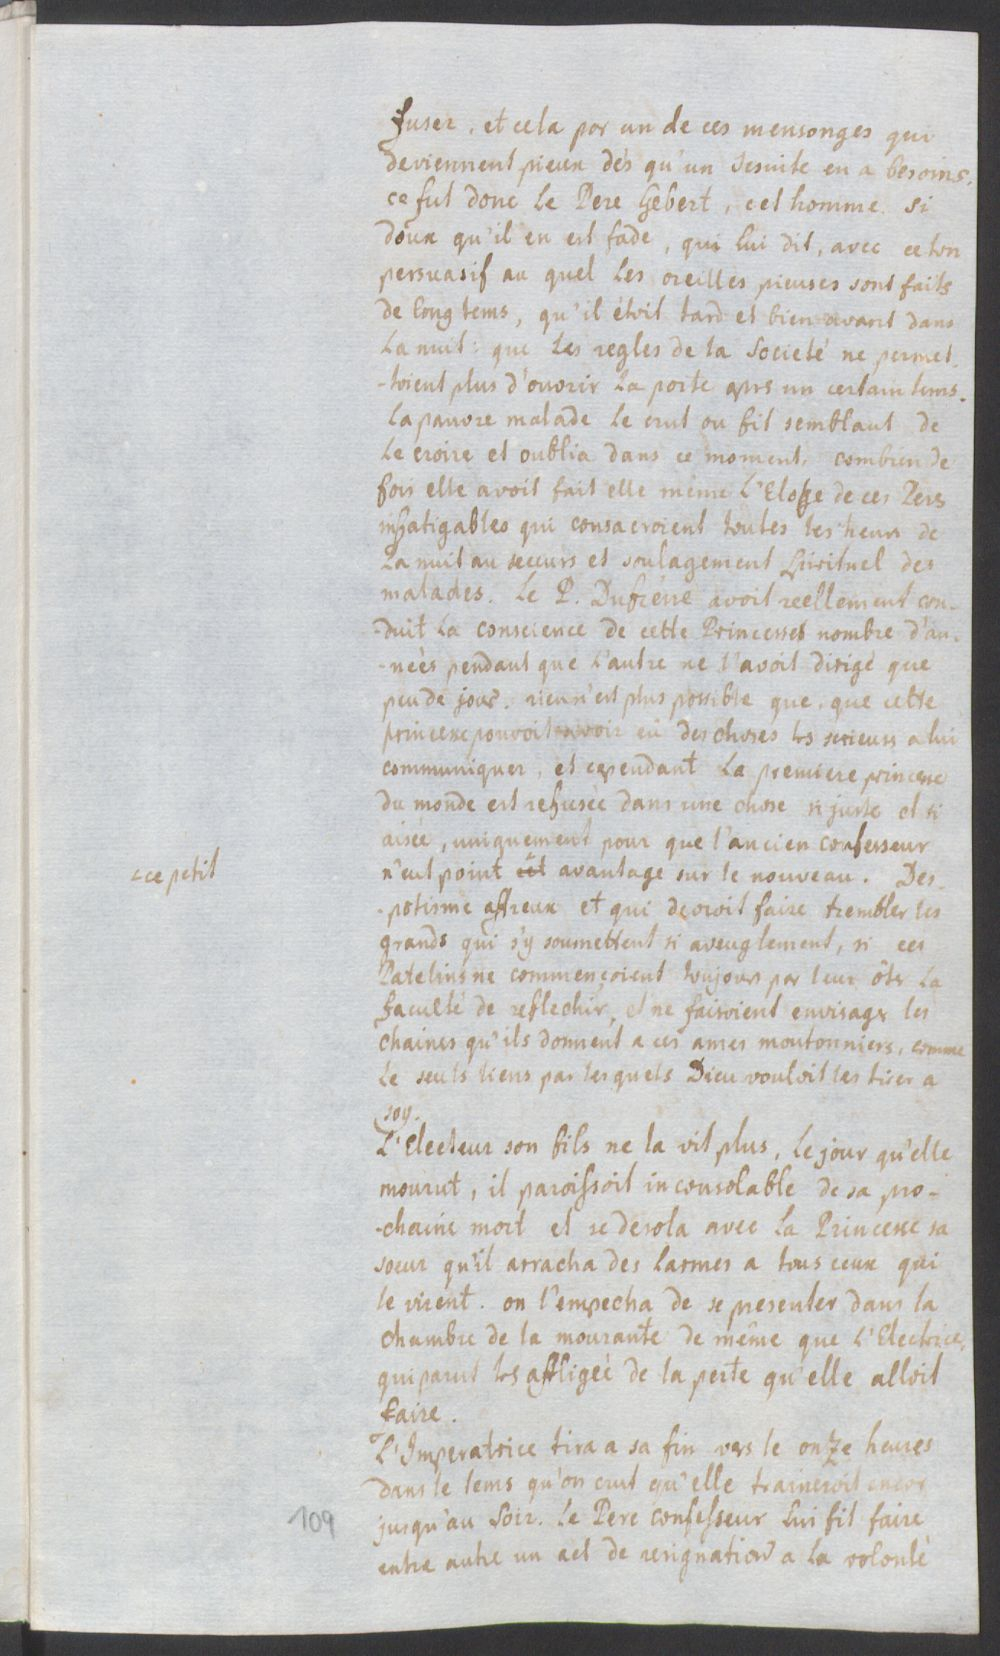 fuser, et cela par un de ces mensonges qui
deviennent pieux dès qu'un Jesuite en a besoins,
ce fut donc le Pere Gebert, cet homme si
doux qu'il en est fade, qui lui dit, avec ce ton
persuasif au quel les oreilles pieuses sont faits
de long tems, qu'il étoit tard et bien avant dans
la nuit: que les regles de la Societé ne permet-
-toient plus d'ouvrir la porte aprs un certain tems.
la pauvre malade le crut ou fit semblant de
le croire et oublia dans ce moment, combien de
fois elle avoit fait elle même l'Eloge de ces Pers
infatigables qui consacroient toutes les heurs de
la nuit au secours et soulagement spirituel des
malades. Le P. Dufréne avoit reellement con-
-duit la conscience de cette Princesse nombre d'an-
-neès pendant que l'autre ne l'avoit dirigé que
peu de jour. rien n'est plus possible que, que cette
princesse pouvoit avoir eû des choses trs serieuss a lui
communiquer, et cependant la premiere princesse
du monde est refusèe dans une chose si juste et si
aisée, uniquement pour que l'ancien confesseur
n'eut point cet avantage sur le nouveau. Des-
-potisme affreux et qui devroit faire trembler les
grands qui s'y soumettent si aveuglement, si ces
Patelins ne commençoient toujours par leur ôter la
faculté de reflechir, et ne faisoient envisager les
chaines qu'ils donnent a ces ames moutonniers, comme
le seuls liens par les quels Dieu vouloit les tirer a
soy.
L'Electeur son fils ne la vit plus, le jour qu'elle
mourut, il paroissoit inconsolable de sa pro-
-chaine mort et se desola avec la Princesse sa
soeur qu'il arracha des larmes a tous ceux qui
le virent. on l'empecha de se presenter dans la
chambre de la mourante de même que l'Electrice,
qui parut trs affligeé de la perte qu'elle alloit
faire.
L'Imperatrice tira a sa fin vers le onze heures
dans le tems qu'on crut qu'elle traineroit encor
jusqu'au soir. le Pere confesseur lui fit faire
entre autre un act de resignation a la volonté
ce petit
109